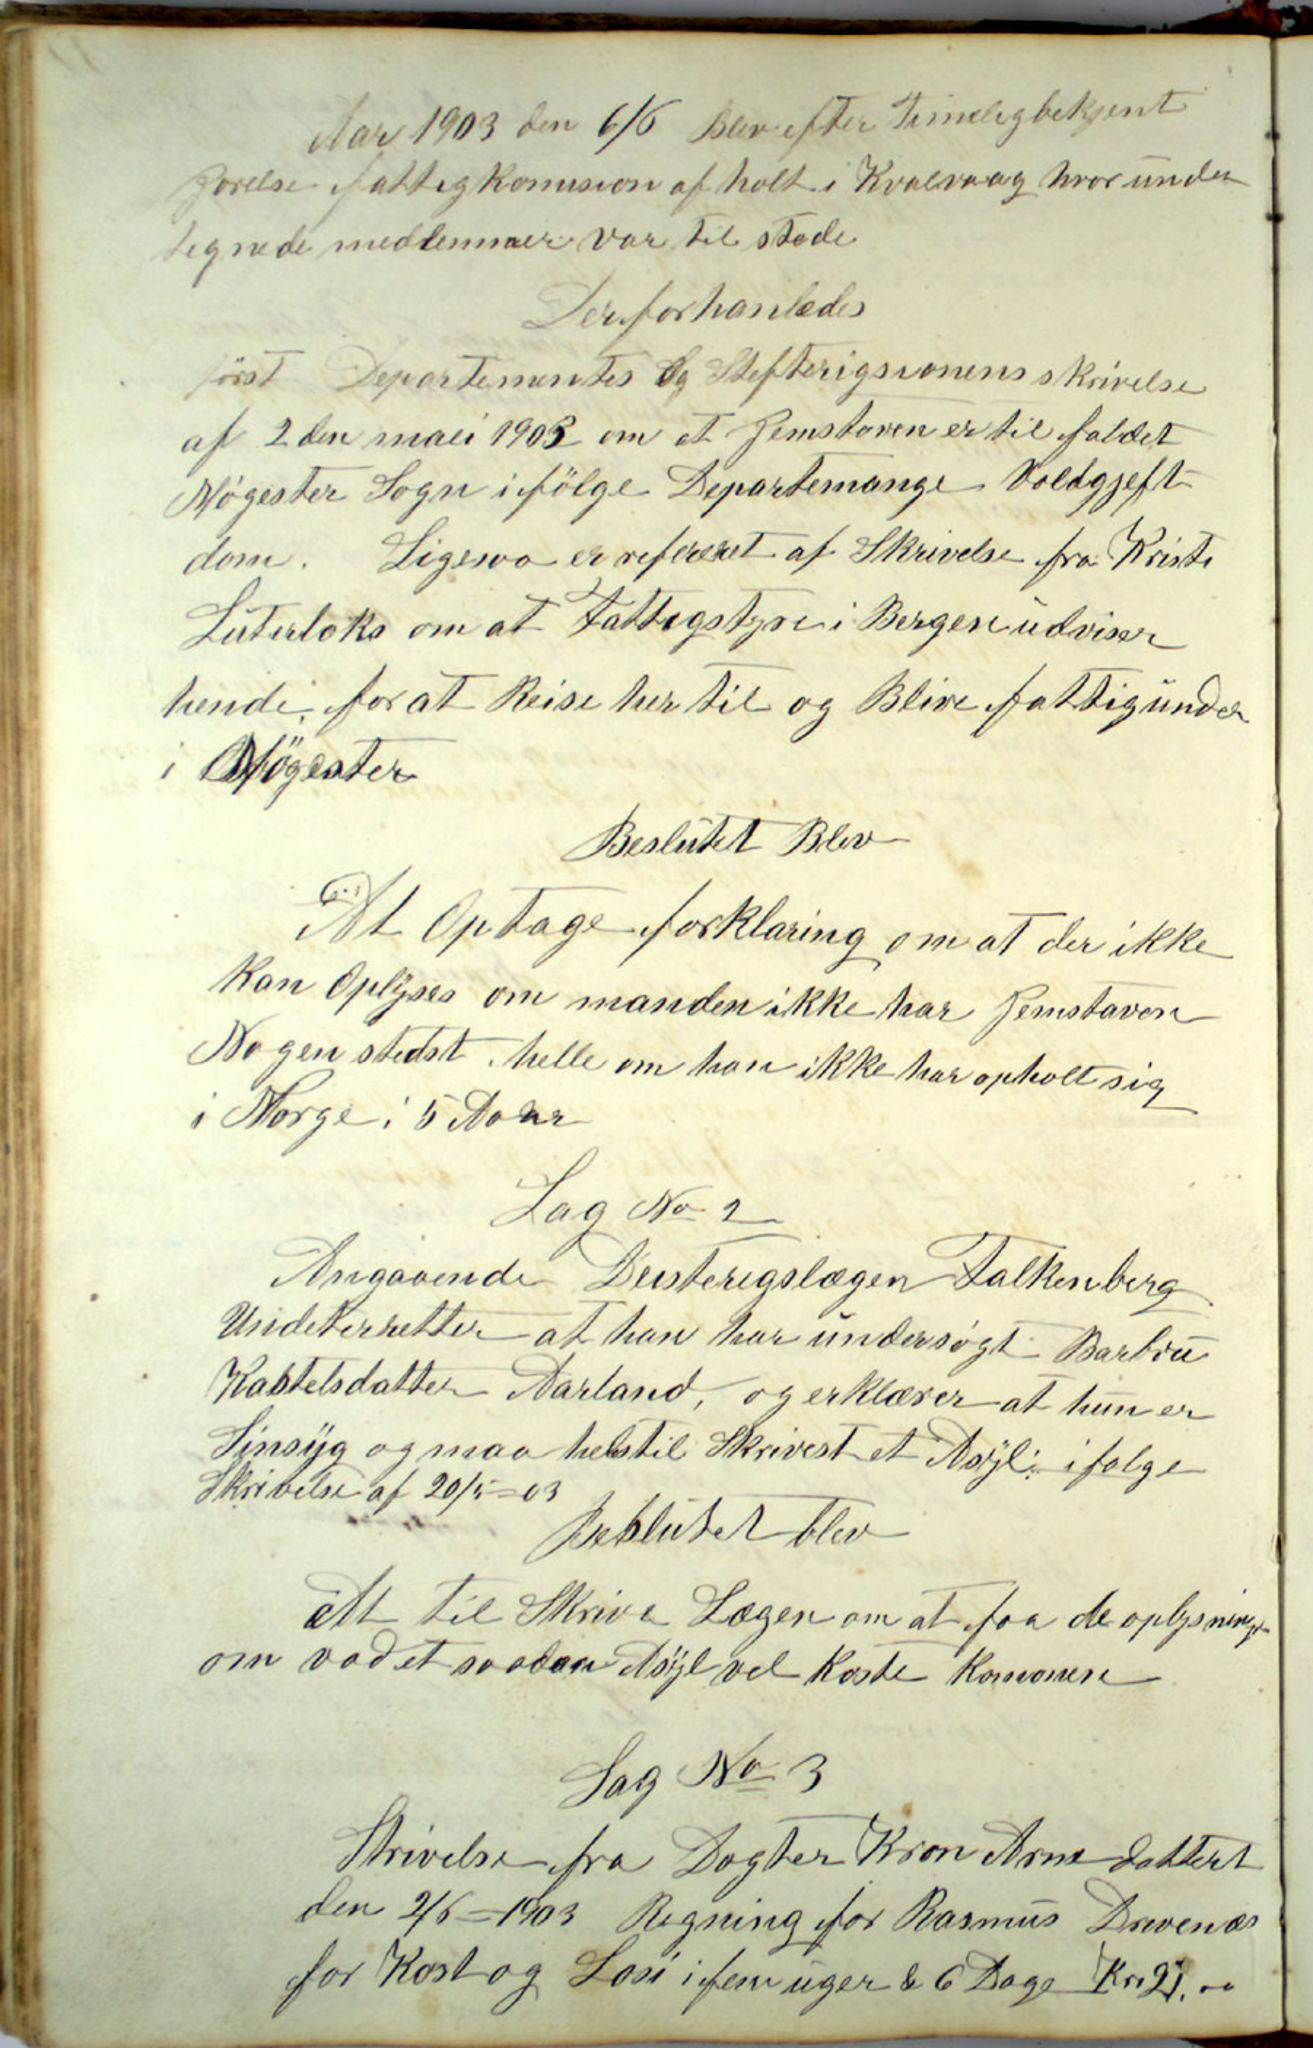 Aar 1903 den 6/6 Blev efter Timeligbekjent
gjorelse fattigkomision af holt i Kvalvaag hvor under
tegnede medlemmer var til stede
Der forhanledes
först Departementes Og Stefterigsionens skrivelse
af 2 den mai 1903 om at Hemstaven er til faldet
Møgester Sogn ifölge Departemange Voldgjeft
dom. Ligesoo er referret af Skrivelse fra Kristi
Luterloks om at Fattigstyre i Bergen udviser
hende, for at Reise her til og Blive fattigunder
i Mögester
Beslutet Blev
At Optage forklaring om at der ikke
Kan Oplyses om manden ikke har Hemstaven
Nogen stedst. helle om han ikke har opholt sig
i Norge i 5 Aar
Sag No 2
Angaaende Desterigslægen Falkenberg
Undeterretter at han har undersøgt Barbru
Kastelsdatter Aarland, og erklærer at hun er
Sinsyg og maa helstil Skrivest et Asyl: ifolge
Skrivelse af 20/5=03
Beslutet blev
At til Skrive Lægen om at faa de oplysninger
om vad et saadan Asyl vel Koste Komonen
Sag No 3
Skrivelse fra Dogter Kron Arne dattert
den 2/6=1903 Regning for Rasmus Drevenæs
for Kost og Losi i fem uger & 6 Dage Kr. 21.